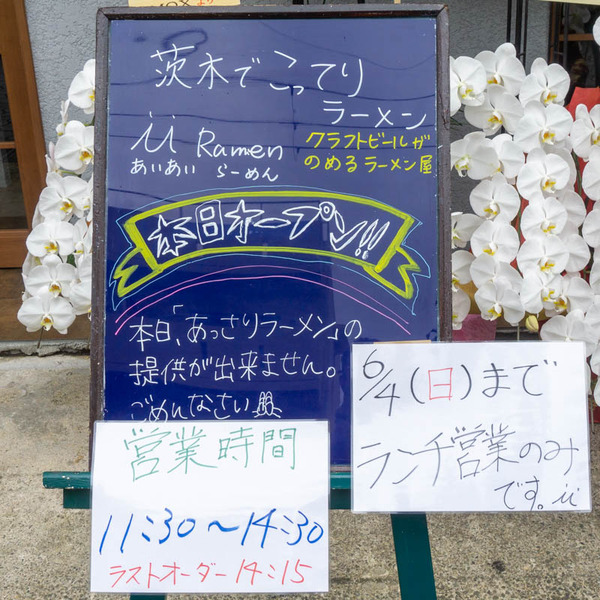 茨木でこってり
ラーメン
ii Ramen
あいあい らーめん
クラフトビールが
のめるラーメン屋
本日オープン!!
本日、「あっさりラーメン」の
提供が出来ません。
ごめんなさい
営業時間
11:30～14:30
ラストオーダー14:15
6/4(日)まで
ランチ営業のみ
です。ii